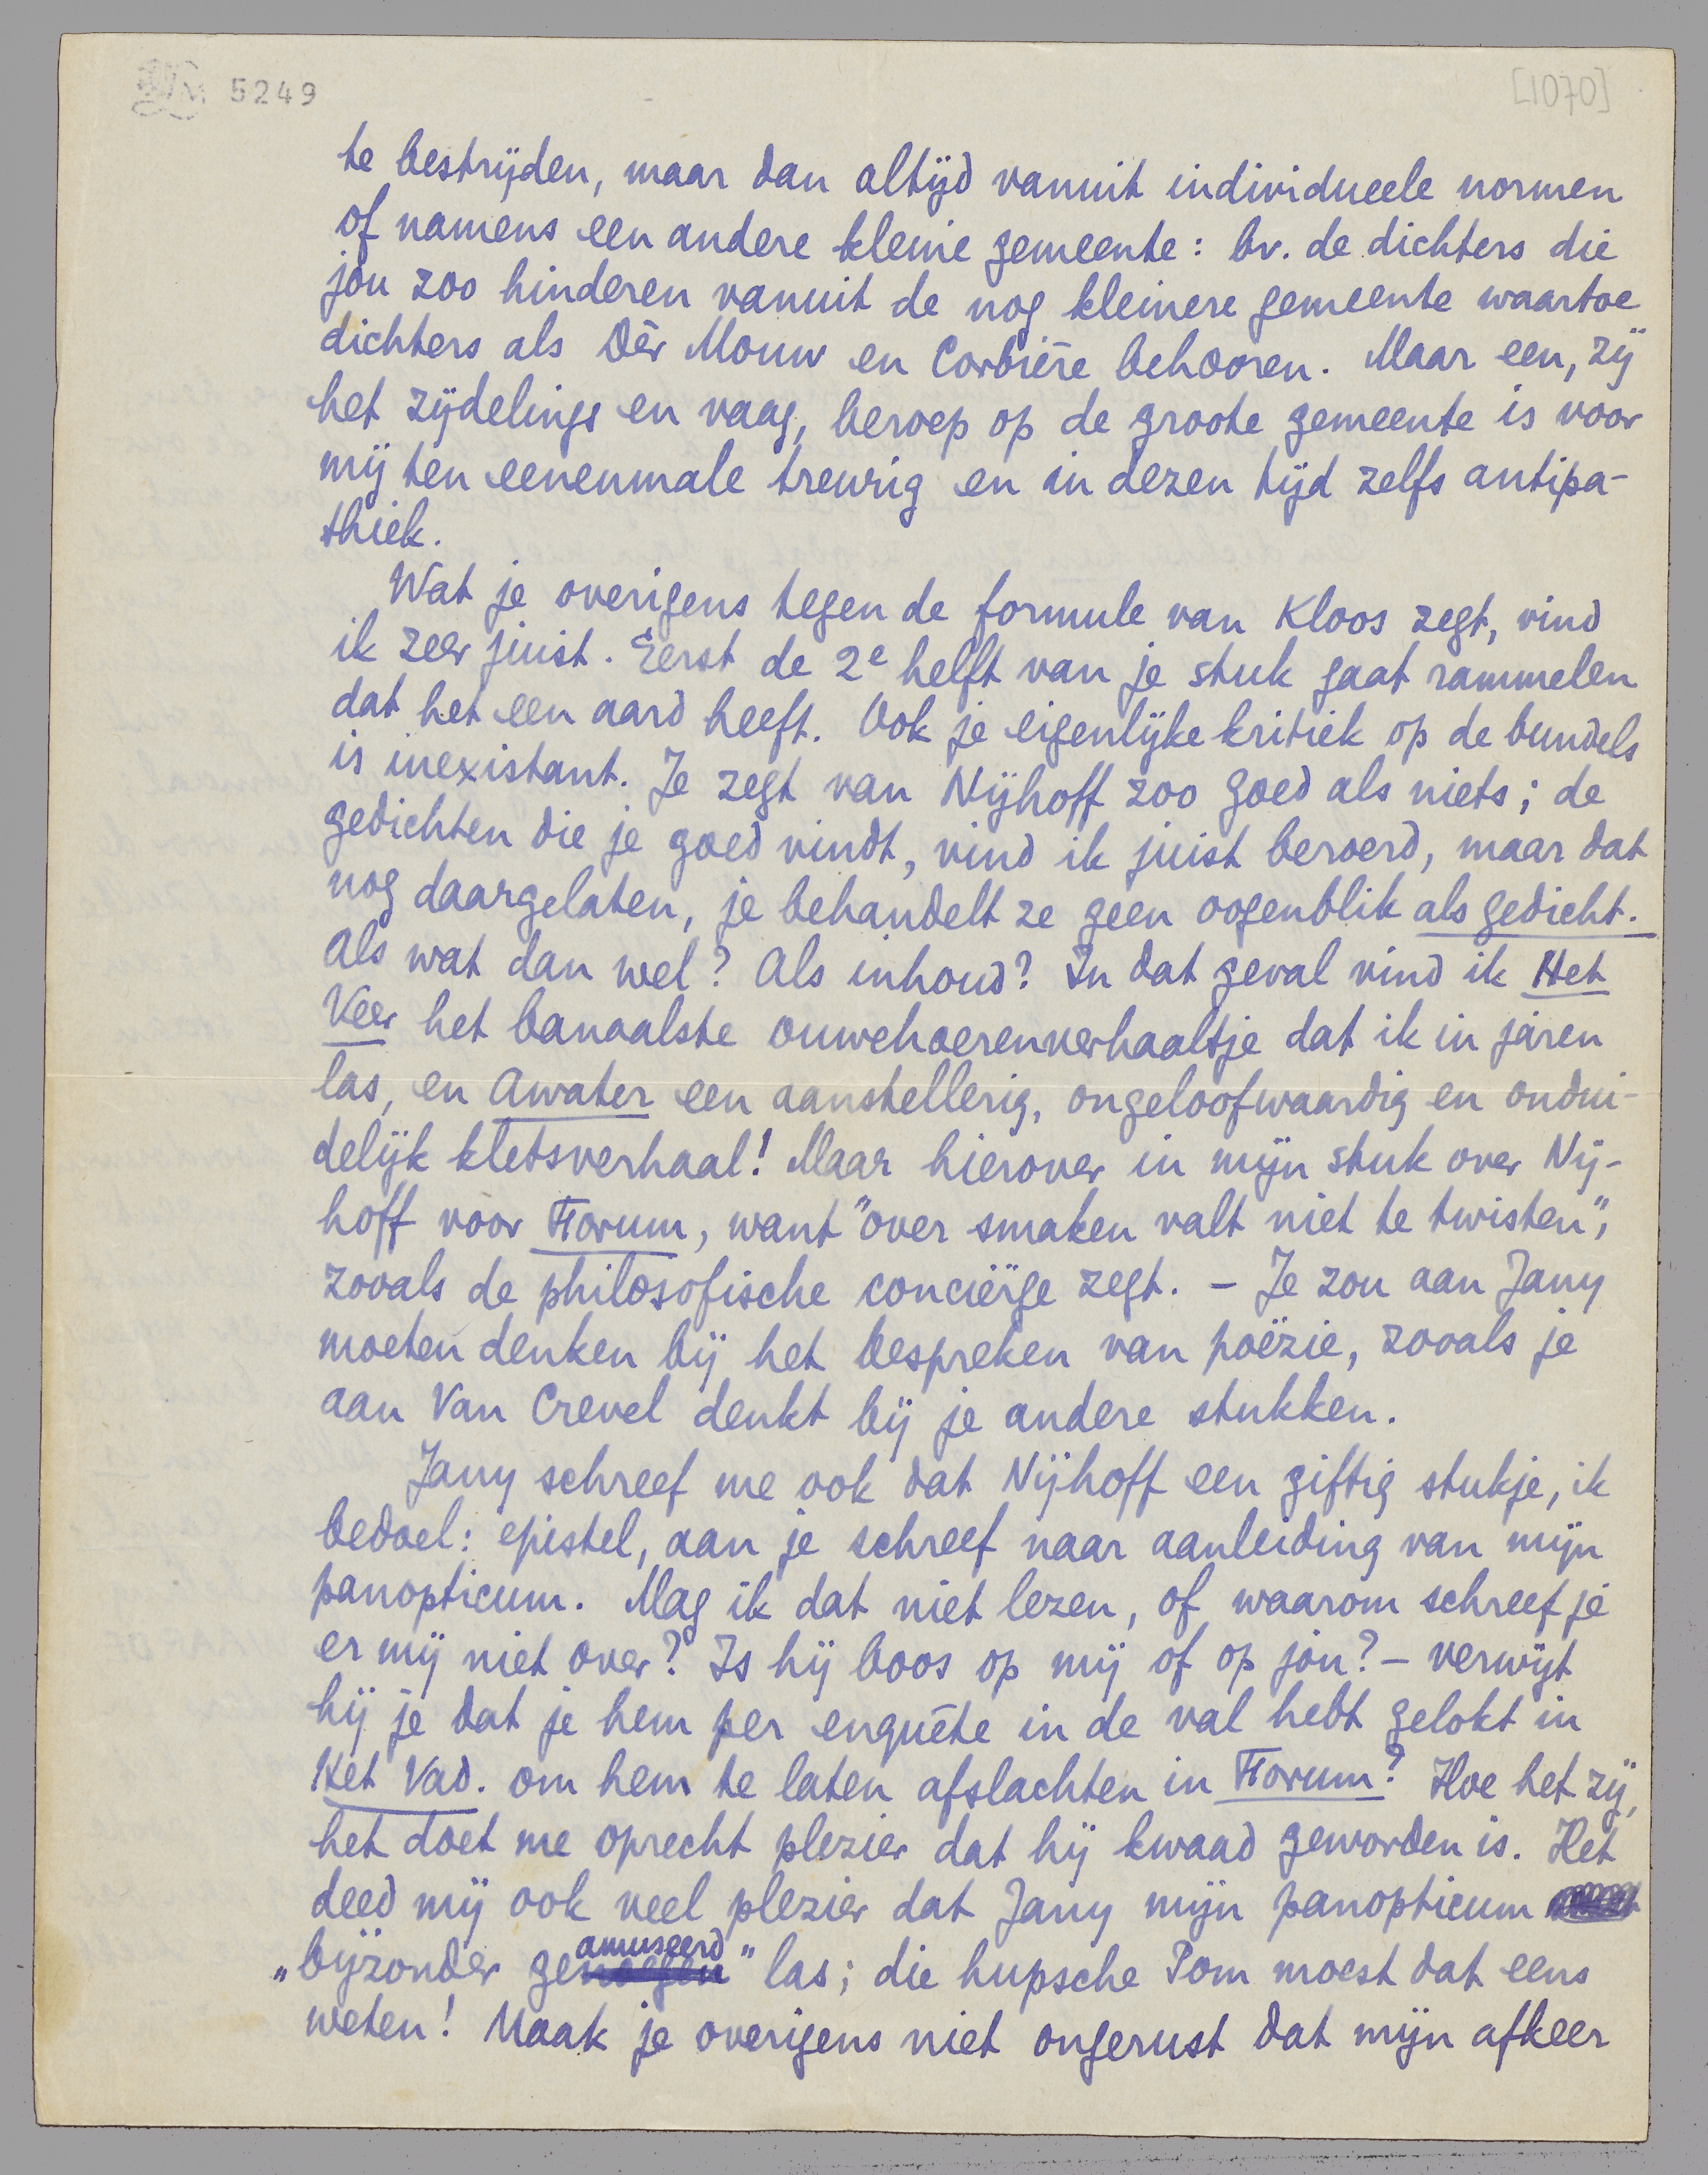 5249
[1070]
te bestrijden, maar dan altijd vanuit individueele normen
of namens een andere kleine gemeente: bv. de dichters die
jou zoo hinderen vanuit de nog kleinere gemeente waartoe
dichters als Dèr Mouw en Corbière behooren. Maar een, zij
het zijdelings en vaag, beroep op de groote gemeente is voor
mij ten eenenmale treurig en in dezen tijd zelfs antipa-
thiek.
Wat je overigens tegen de formule van Kloos zegt, vind
ik zeer juist. Eerst de 2e helft van je stuk gaat rammelen
dat het een aard heeft. Ook je eigenlijke kritiek op de bundels
is inexistant. Je zegt van Nijhoff zoo goed als niets; de
gedichten die je goed vindt, vind ik juist beroerd, maar dat
nog daargelaten, je behandelt ze geen oogenblik als gedicht.
Als wat dan wel? Als inhoud? In dat geval vind ik Het
Veer het banaalste ouwehoerenverhaaltje dat ik in jaren
las, en Awater een aanstellerig, ongeloofwaardig en ondui-
delijk kletsverhaal! Maar hierover in mijn stuk over Nij-
hoff voor Forum, want "over smaken valt niet te twisten",
zooals de philosofische conciërge zegt. – Je zou aan Jany
moeten denken bij het bespreken van poëzie, zooals je
aan Van Crevel denkt bij je andere stukken.
Jany schreef me ook dat Nijhoff een giftig stukje, ik
bedoel: epistel, aan je schreef naar aanleiding van mijn
panopticum. Mag ik dat niet lezen, of waarom schreef je
er mij niet over? Is hij boos op mij of op jou? – verwijt
hij je dat je hem per enquête in de val hebt gelokt in
Het Vad. om hem te laten afslachten in Forum? Hoe het zij,
het doet me oprecht plezier dat hij kwaad geworden is. Het
deed mij ook veel plezier dat Jany mijn panopticum
„bijzonder geamuseerd" las; die hupsche Pom moest dat eens
weten! Maak je overigens niet ongerust dat mijn afkeer